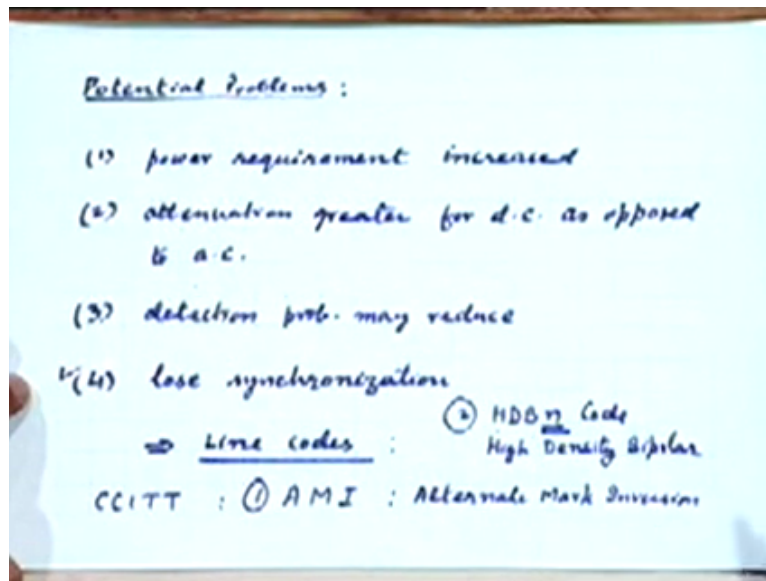 Potential Problems :
(1) power requirement increased
(2) attenuation greater for d.c. as opposed
to a.c.
(3) detection prob. may reduce
(4) lose synchronization
⇒ Line codes :
② HDBn Code
High Density Bipolar
CCITT : ① AMI : Alternate Mark Inversion